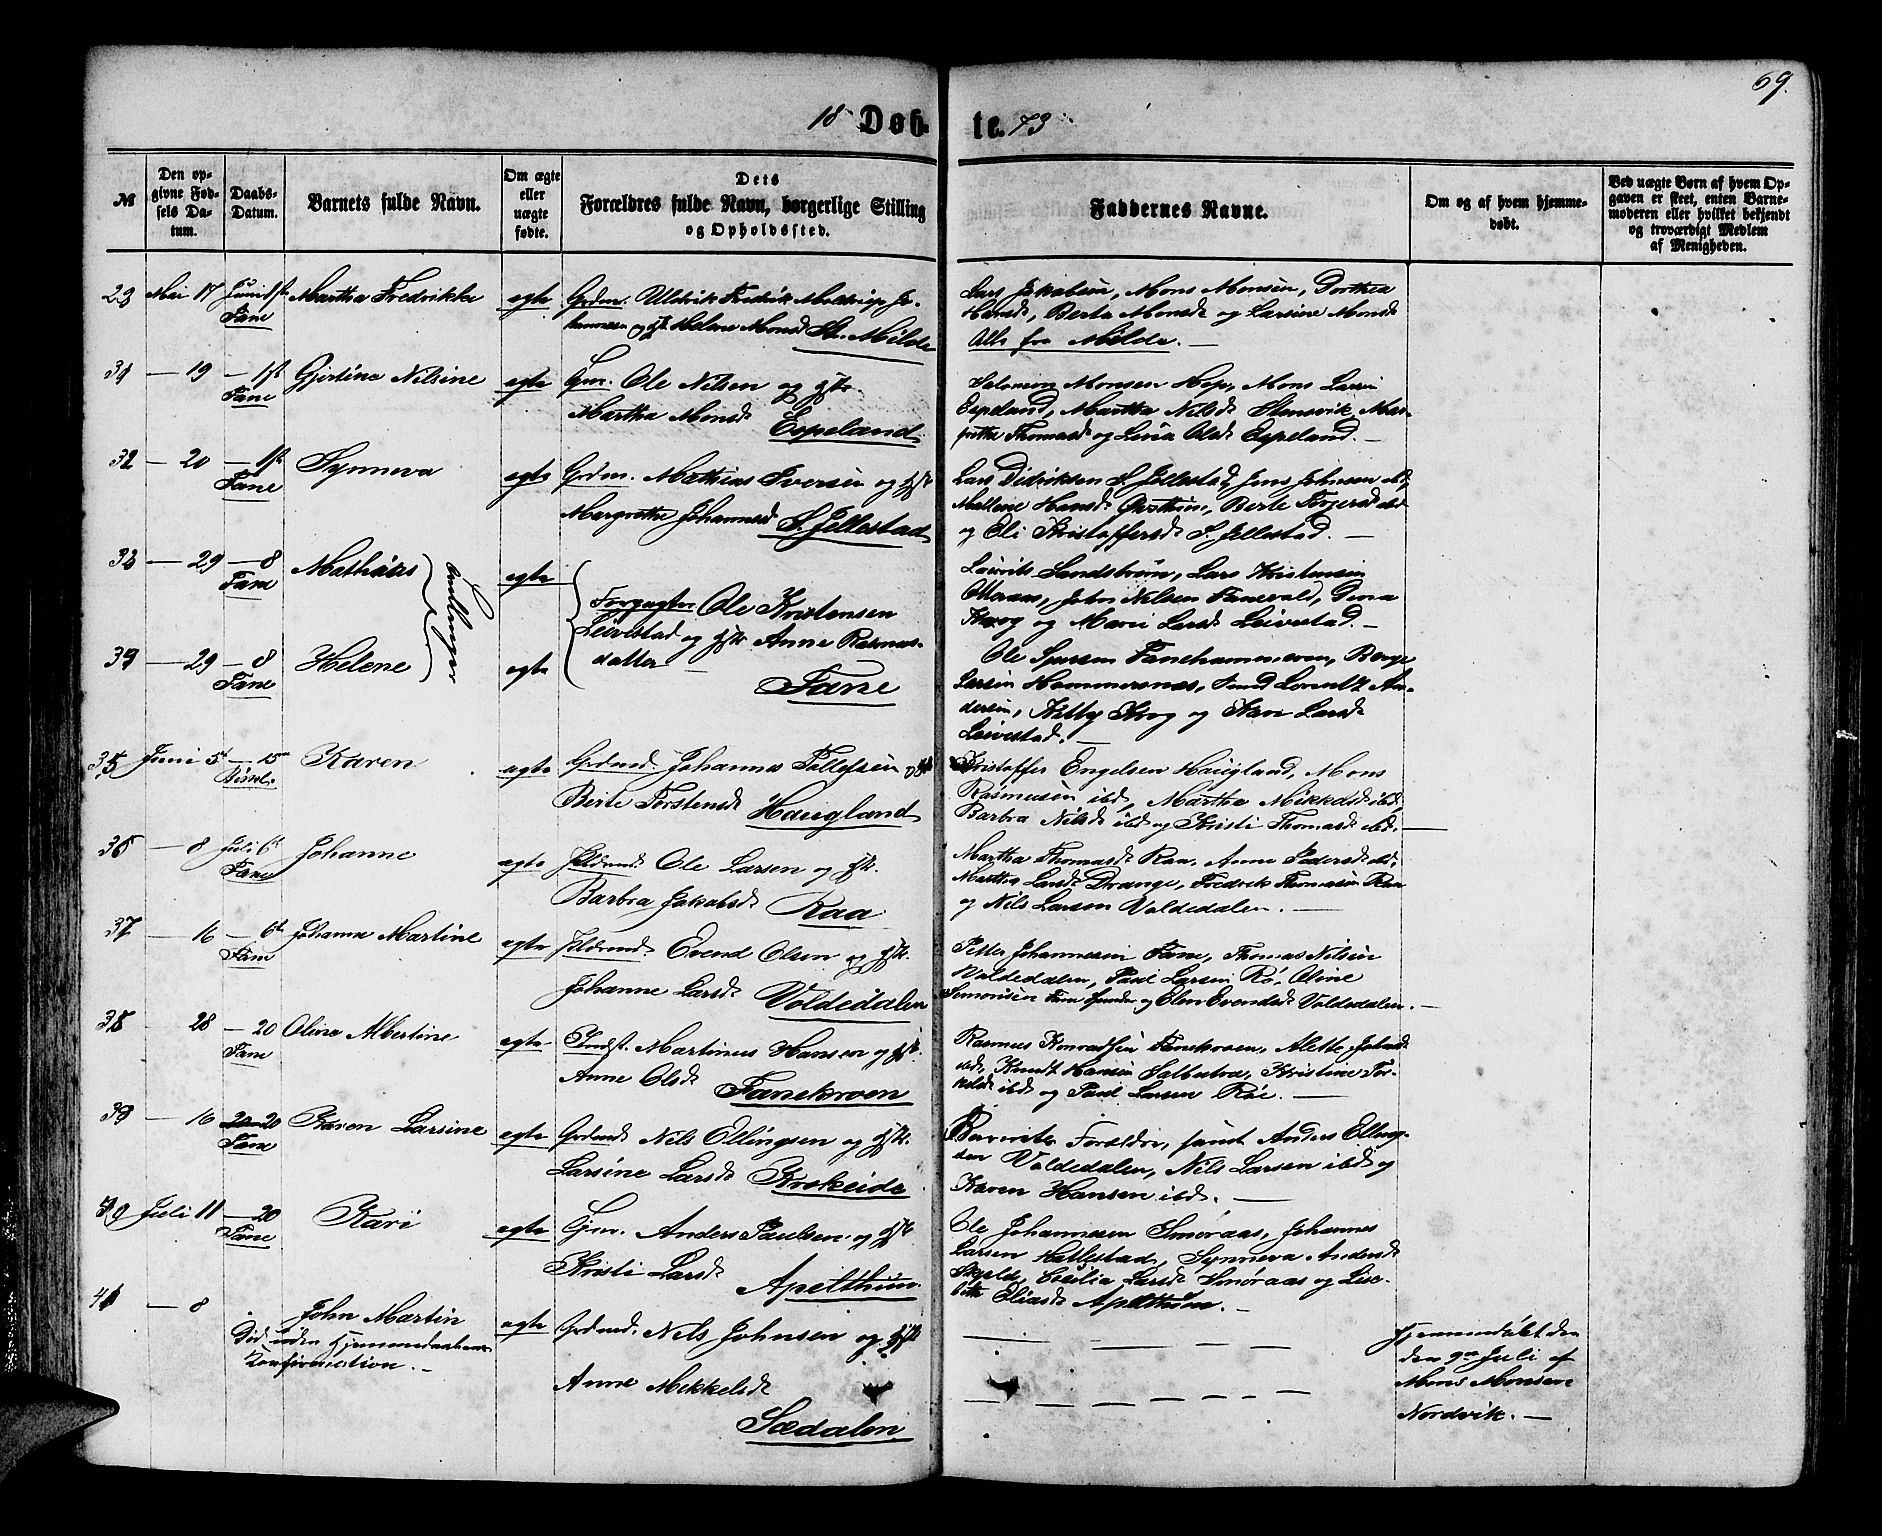 69.
18 Døb- te. 73
№
Den op-
givne Fød-
sels Da-
tum.
Daabs-
Datum.
Barnets fulde Navn.
Om ægte
eller
uægte
fødte.
Dets
Forældres fulde Navn, borgerlige Stilling
og Opholdssted.
Faddernes Navne.
Om og af hvem hjemme-
døbt.
Ved uægte Børn af hvem Op-
gaven er skeet, enten Barne-
moderen eller hvilket bekjendt
og troværdigt Medlem
af Menigheden.
Mai 17 Juni 1st Martha Fredrikke egte Grdm. Uldrik Fredrik
Fane Helene Monsd St. Milde
Lars Jakobsen, Mons Monsen, Dorthea
Hansd, Berta Monsd og Larsine Monsd
Alle fra Milde. —
31 — 19 — 1st Gjertine Nilsine egte Gm. Ole Nilsen og Hst.
Fane Martha Monsd Espeland
Salomon Monsen Hop, Mons Larsen
Espeland, Martha Nilsd Stensvik, Mar-
grethe Thomasd og Lisa Olsd Espeland. —
32 — 20 — 1st Synneva egte Grdm. Mathias Iversen og Hst
Fane Margrethe Johannesd S. Jellestad
Lars Didriksen S. Jellestad, Jens Johnsen ibd,
Mallene Hansd Berte Torgersd ibd
og Eli Kristoffersd S. Jellestad. —
33 — 29 — 8 Mathias egte
Fane Tvillinger
Ole Kristensen
Leivestad og Hst Anne Rasmus-
datter —
Fane
Laurits Sandstrøm, Lars Kristensen
Otteraas, John Nilsen Fanevald, Dina
Krog og Mari Larsd Leivestad —
34 — 29 — 8 Helene egte
Fane
Ole Fanehammeren, Børge
Larsen Hammersnes, Lorentz An-
dersen, Krog og Larsd
Leivestad. —
35 Juni 5t — 15 Karen egte Grdmd. Johannes Tollefsen og Hst
Berte Torstensd Haugland
Kristoffer Engelsen Haugland, Mons
Rasmussen ibd, Martha Mikkelsd ibd,
Barbra Nilsd ibd og Kristi Thomasd ibd. —
36 — 8 Juli 6t Johanne egte Ole Larsen og Hst.
Fane Barbra Jakobsd Raa
Martha Thomasd Raa, Anne Pedersd ibd,
Martha Larsd Drange, Fredrik Thomasen Raa
og Nils Larsen Voldedalen. —
37 — 16 — 6t Johanne Martine egte Evend Olsen og Hst.
Fane Johanne Larsd Voldedalen
Petter Johannesen Fane, Thomas Nilsen
Voldedalen, Paul Larsen Rø, Oline
Simonsen Fane og Elen Evendsd Voldedalen. —
38 28 — 20 Oline Albertine egte Martinus Hansen og Hst.
Fane Anne Olsd Fanekroen
Rasmus Fanekroen, Alette
ibd, Knud Hansen Kristine Tor-
kelsd ibd og Paul Larsen Røe. —
39 — 16 20 20 Karen Larsine egte Grdmd Nils Ellingsen og Hst.
Fane Larsine Larsd Krokeide
Barnets Forældre, samt Anders Elling-
sen Voldedalen, Nils Larsen ibd og
Karen Hansen ibd. —
Juli 11 — 20 Kari egte Gm. Anders Paulsen og Hst
Fane Kristi Larsd Apelthun
Ole Johannesen Smøraas, Johannes
Larsen Hatlestad, Synneva Andersd
Cecilia Larsd Smøraas og Lise-
bet Eliasd Apelthun. —
41 — 8 John Martin egte Grdmd. Nils Johnsen og Hst
Død uden Hjemmedaabens
Konfirmation. — Anne Mikkelsd
Sædalen
Hjemmedøbt den
den 9de Juli af
Mons Monsen
Nordvik. —